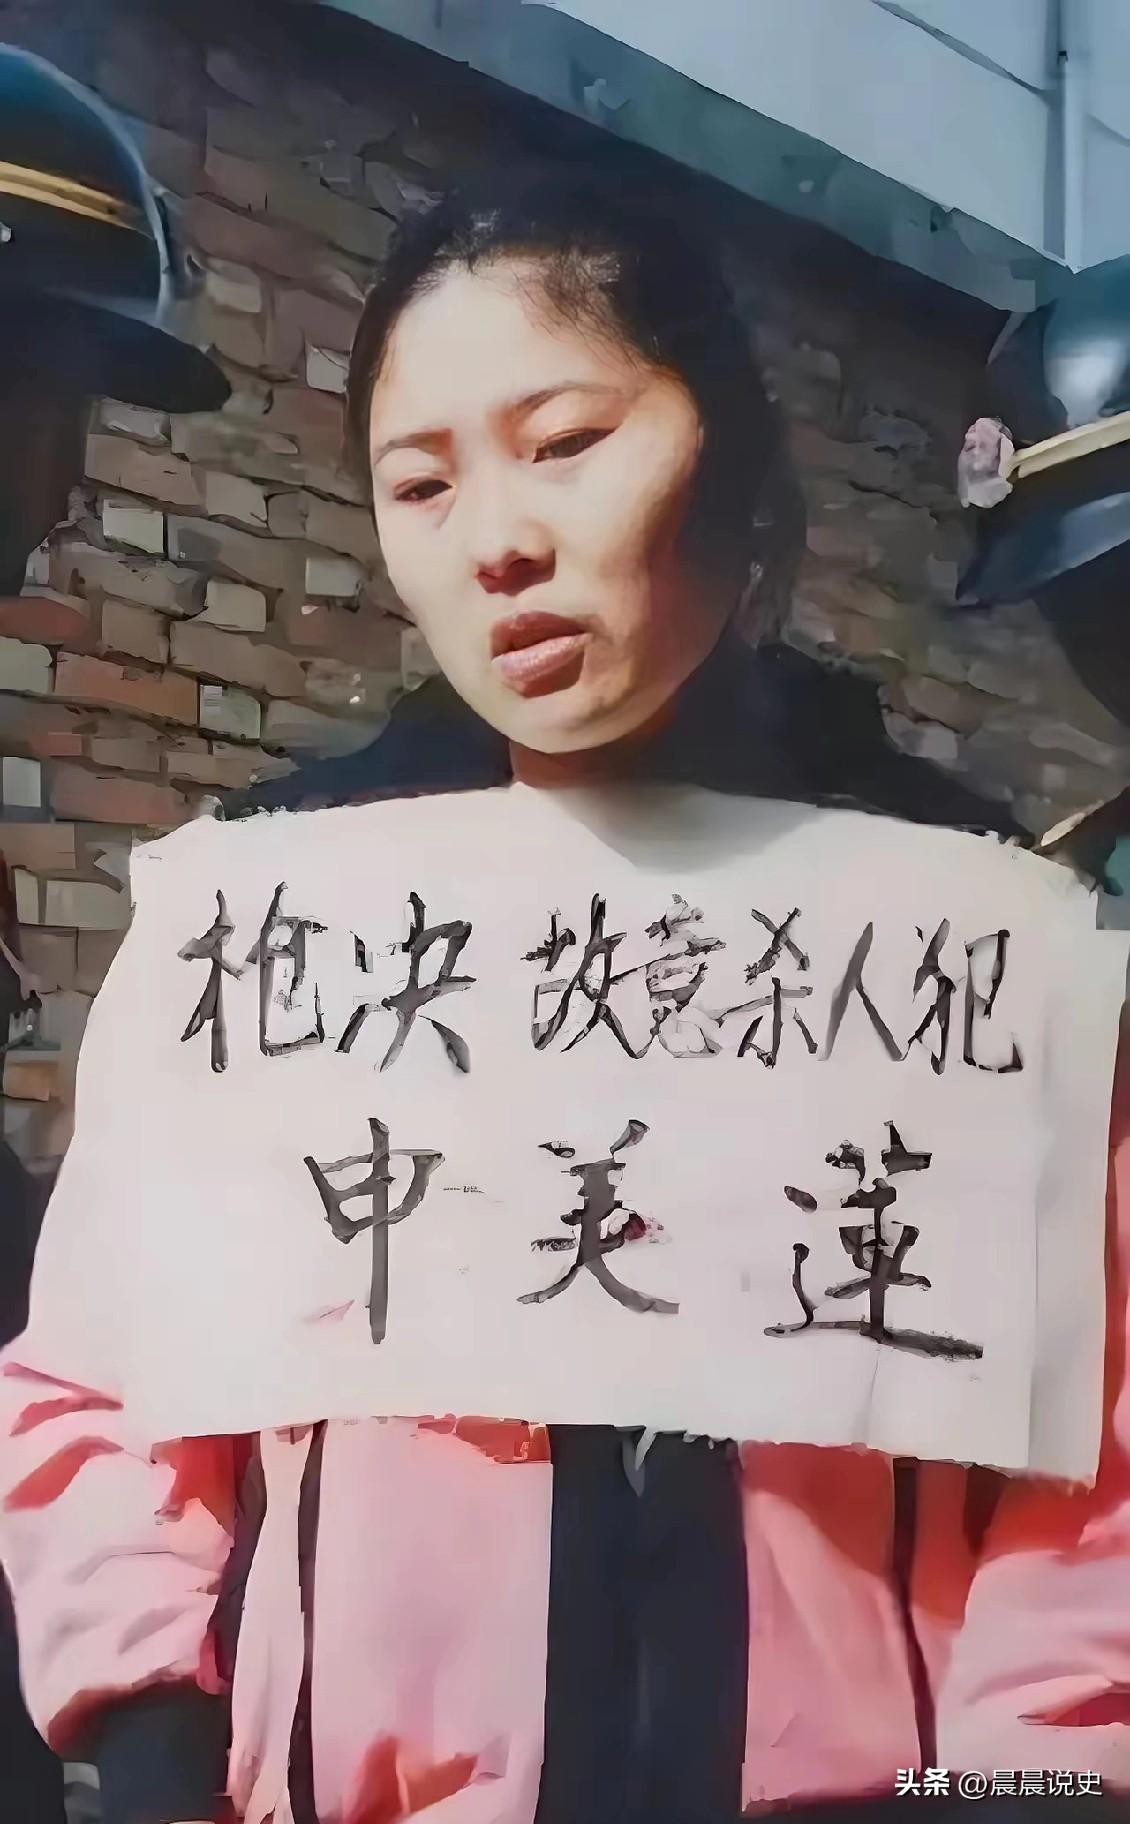 枪决 故意杀人犯
申 美 蓮
头条 @晨晨说史